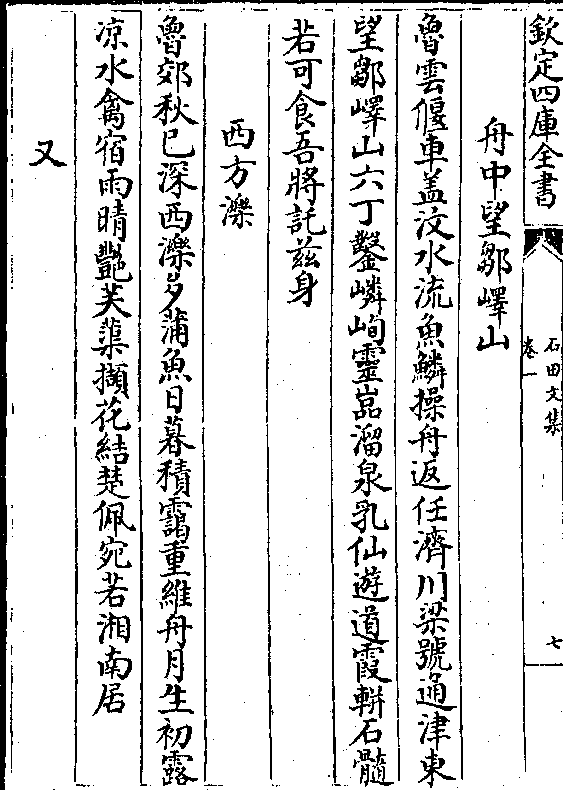 欽定四庫全書
石田文集
卷一
七
舟中望鄒嶧山
魯雲偃車盖汶水流魚鱗操舟返任濟川梁號通津東
望鄒嶧山六丁鑿嶙峋靈嵓溜泉乳仙遊道霞軿石髓
若可食吾將託兹身
西方濼
魯郊秋已深西濼多蒲魚日暮積靄重維舟月生初露
凉水禽宿雨晴艷芙蕖擷花結楚佩宛若湘南居
又